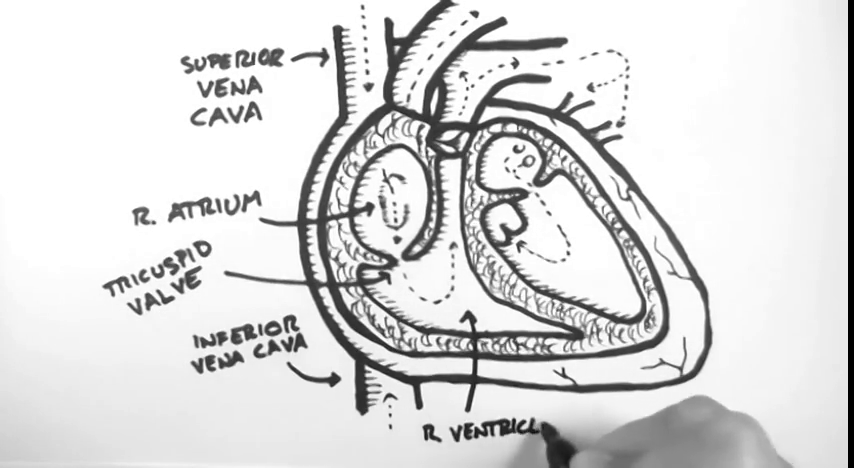 SUPERIOR
VENA
CAVA
R. ATRIUM
TRICUSPID
VALVE
INFERIOR
VENA CAVA
R. VENTRICL